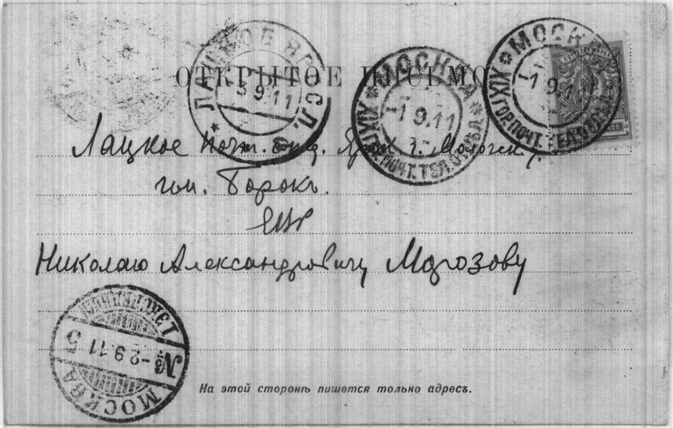 ОТКРЫТОЕ ПИСЬМО
ЛАЦКОЕ ЯРОСЛ.
3.9.11
МОСКВА
-1.9.11
XIX ГОР.ПОЧТ.ТЕЛ.ОТД.
МОСКВА
-1.9.11
XIX ГОР.ПОЧТ.ТЕЛ.ОТД.
Лацкое Почт. Отд. Яросл. г. Мологск. у.
им. Борокъ
ЕВР
Николаю Александровичу Морозову
МОСКВА
-2.9.11 5
На этой сторонѣ пишется только адресъ.